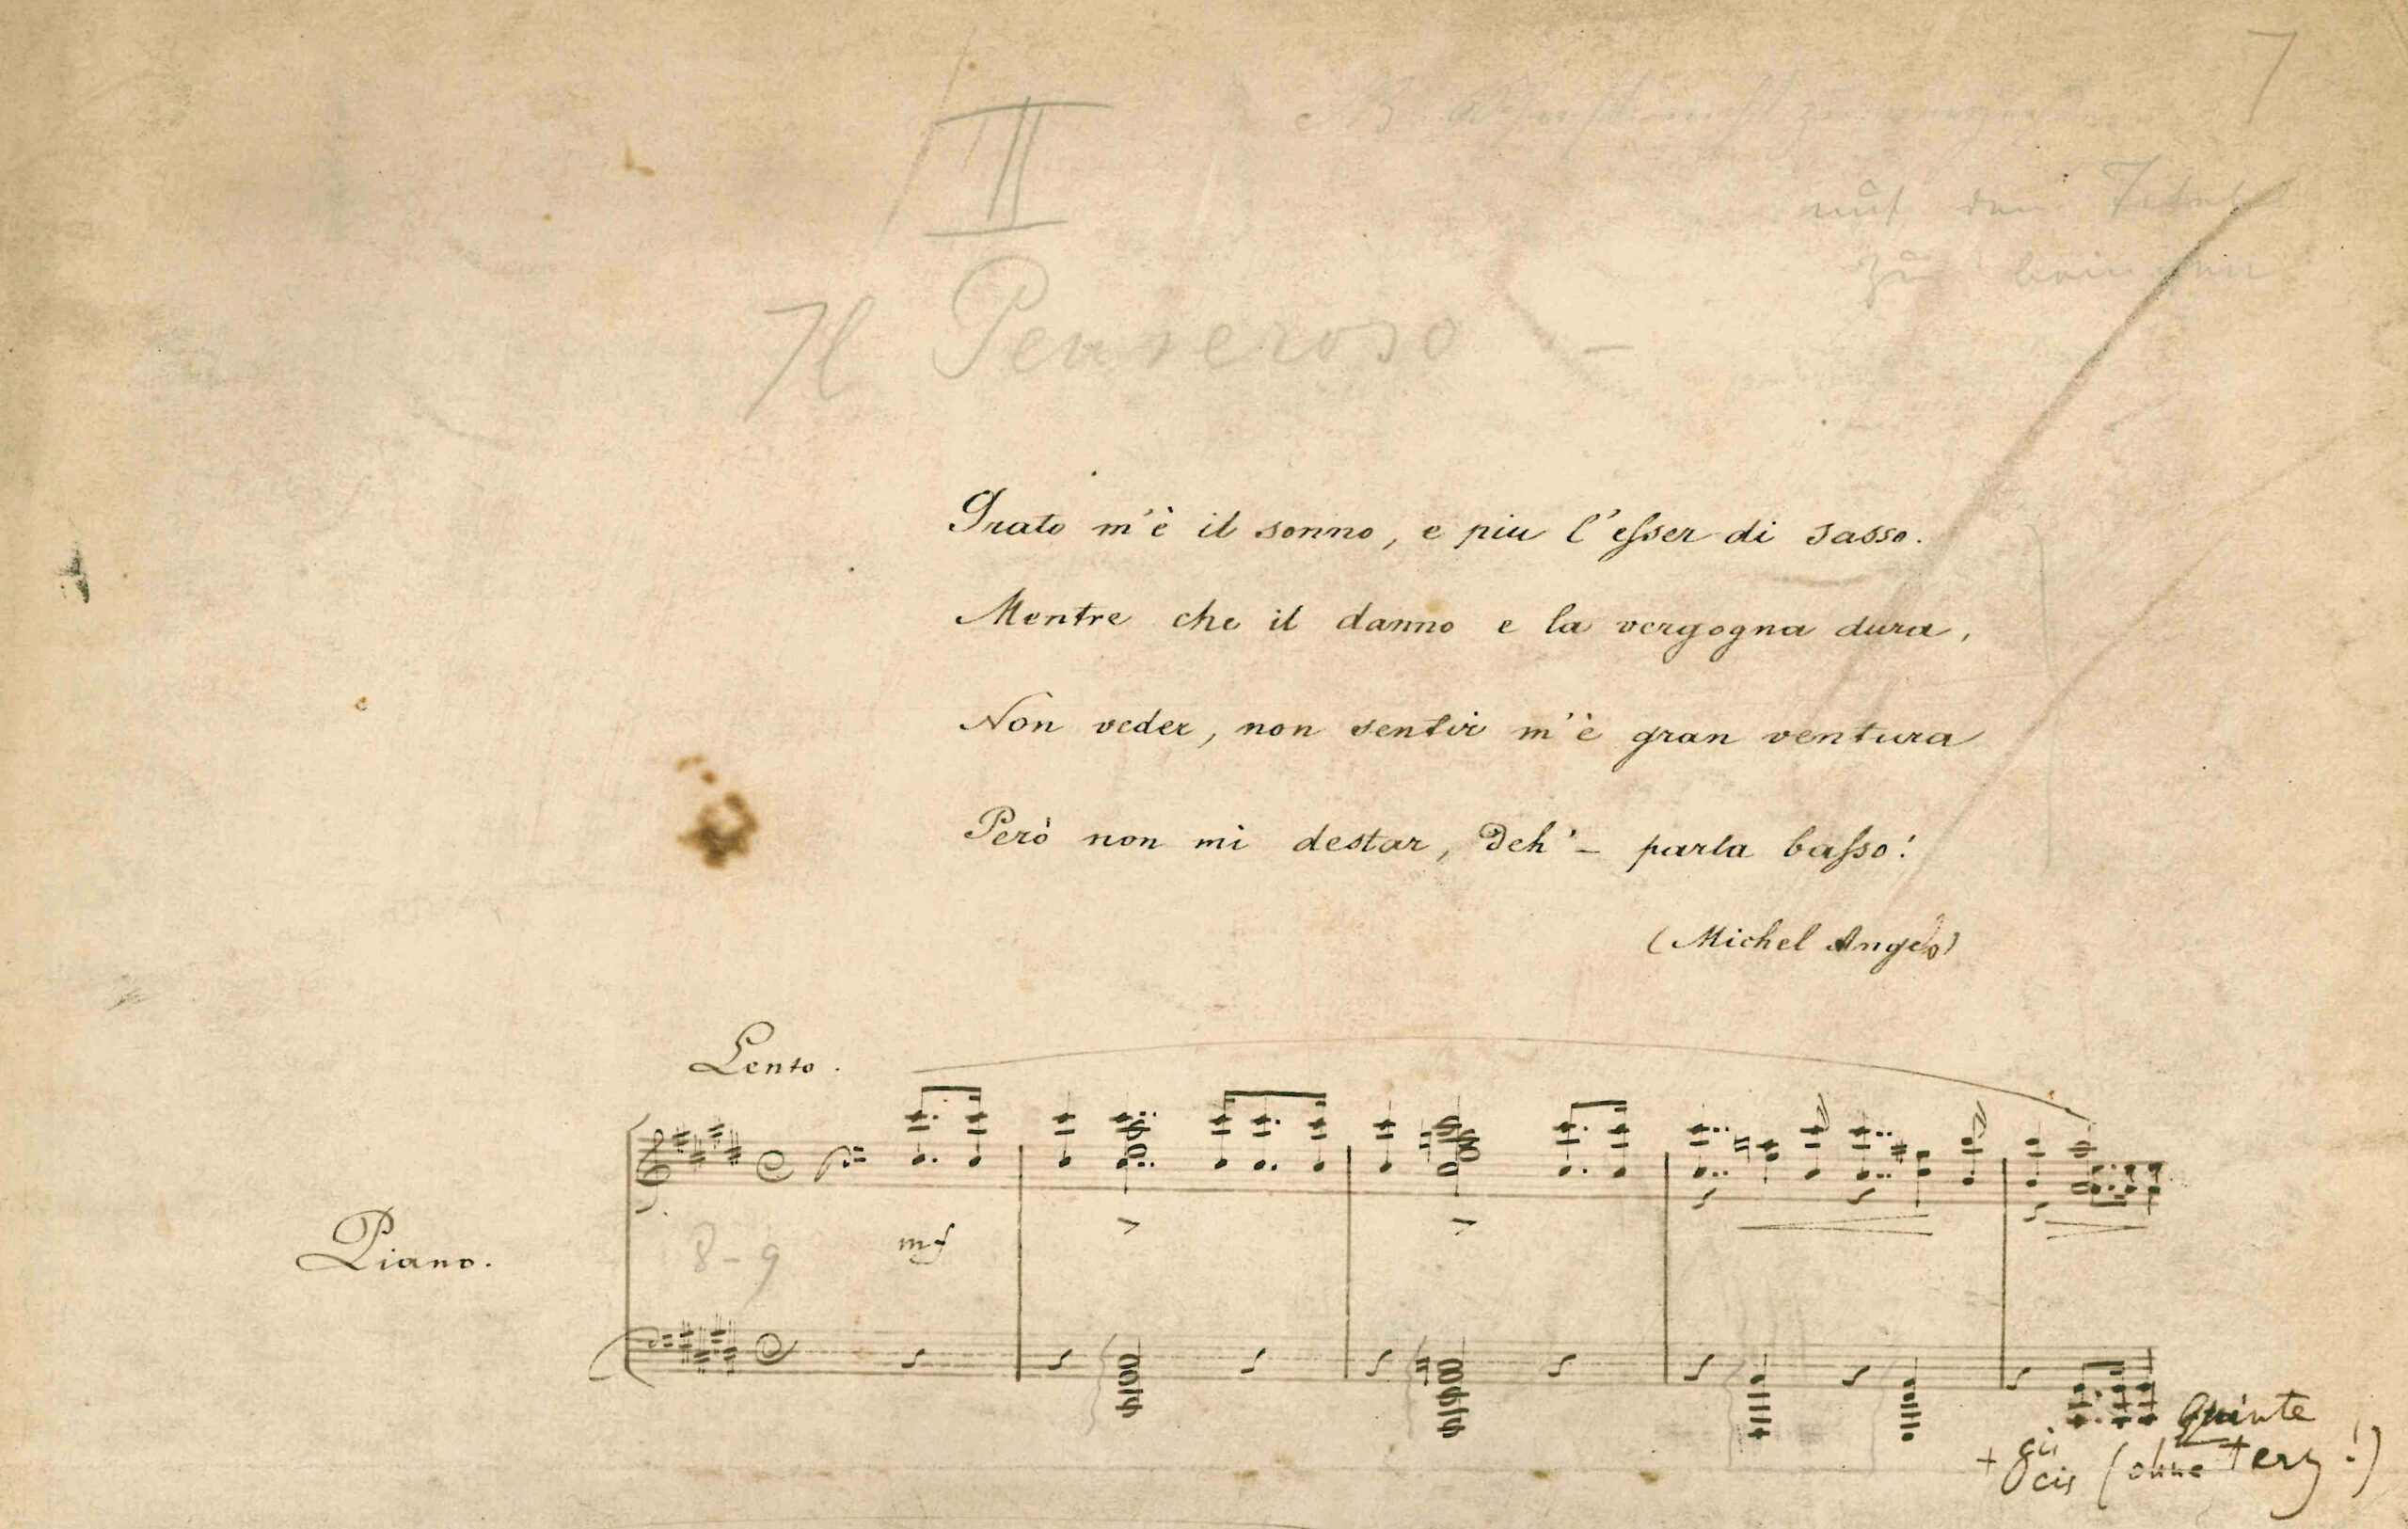 7
II
NB
auf den Titel
zu
Il Penseroso –
Grato m'è il sonno, e piu l'esser di sasso.
Mentre che il danno e la vergogna dura,
Non veder, non sentir m'è gran ventura
Però non mi destar, Deh' – parla basso!
(Michel Angelo)
Lento.
Piano.
8–9
mf
Quinte
+ gis
cis (ohne terz!)